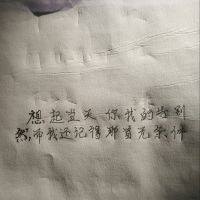 想起当天你我的告别
然而我还记得那首无条件